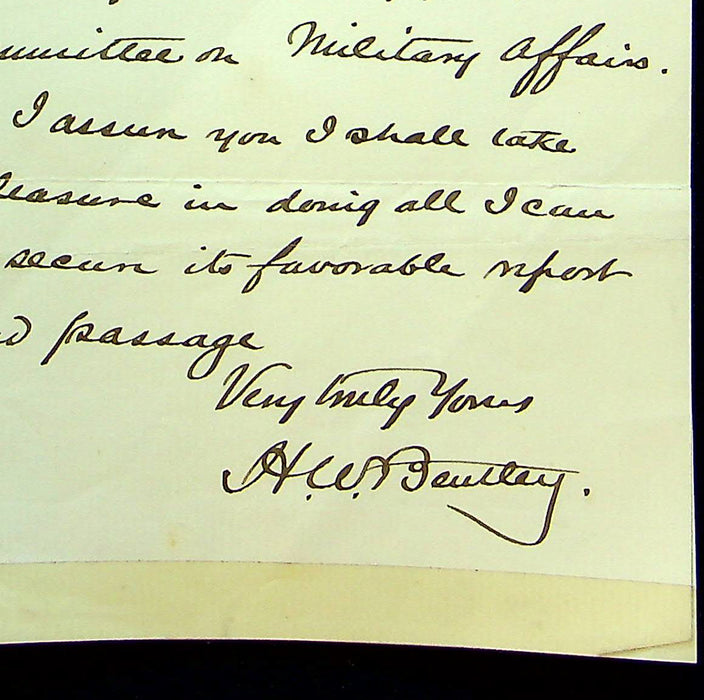 mmittee on Military Affairs.
I assure you I shall take
leasure in doing all I can
secure its favorable report
nd passage
Very truly Yours
H. W. Bentley.